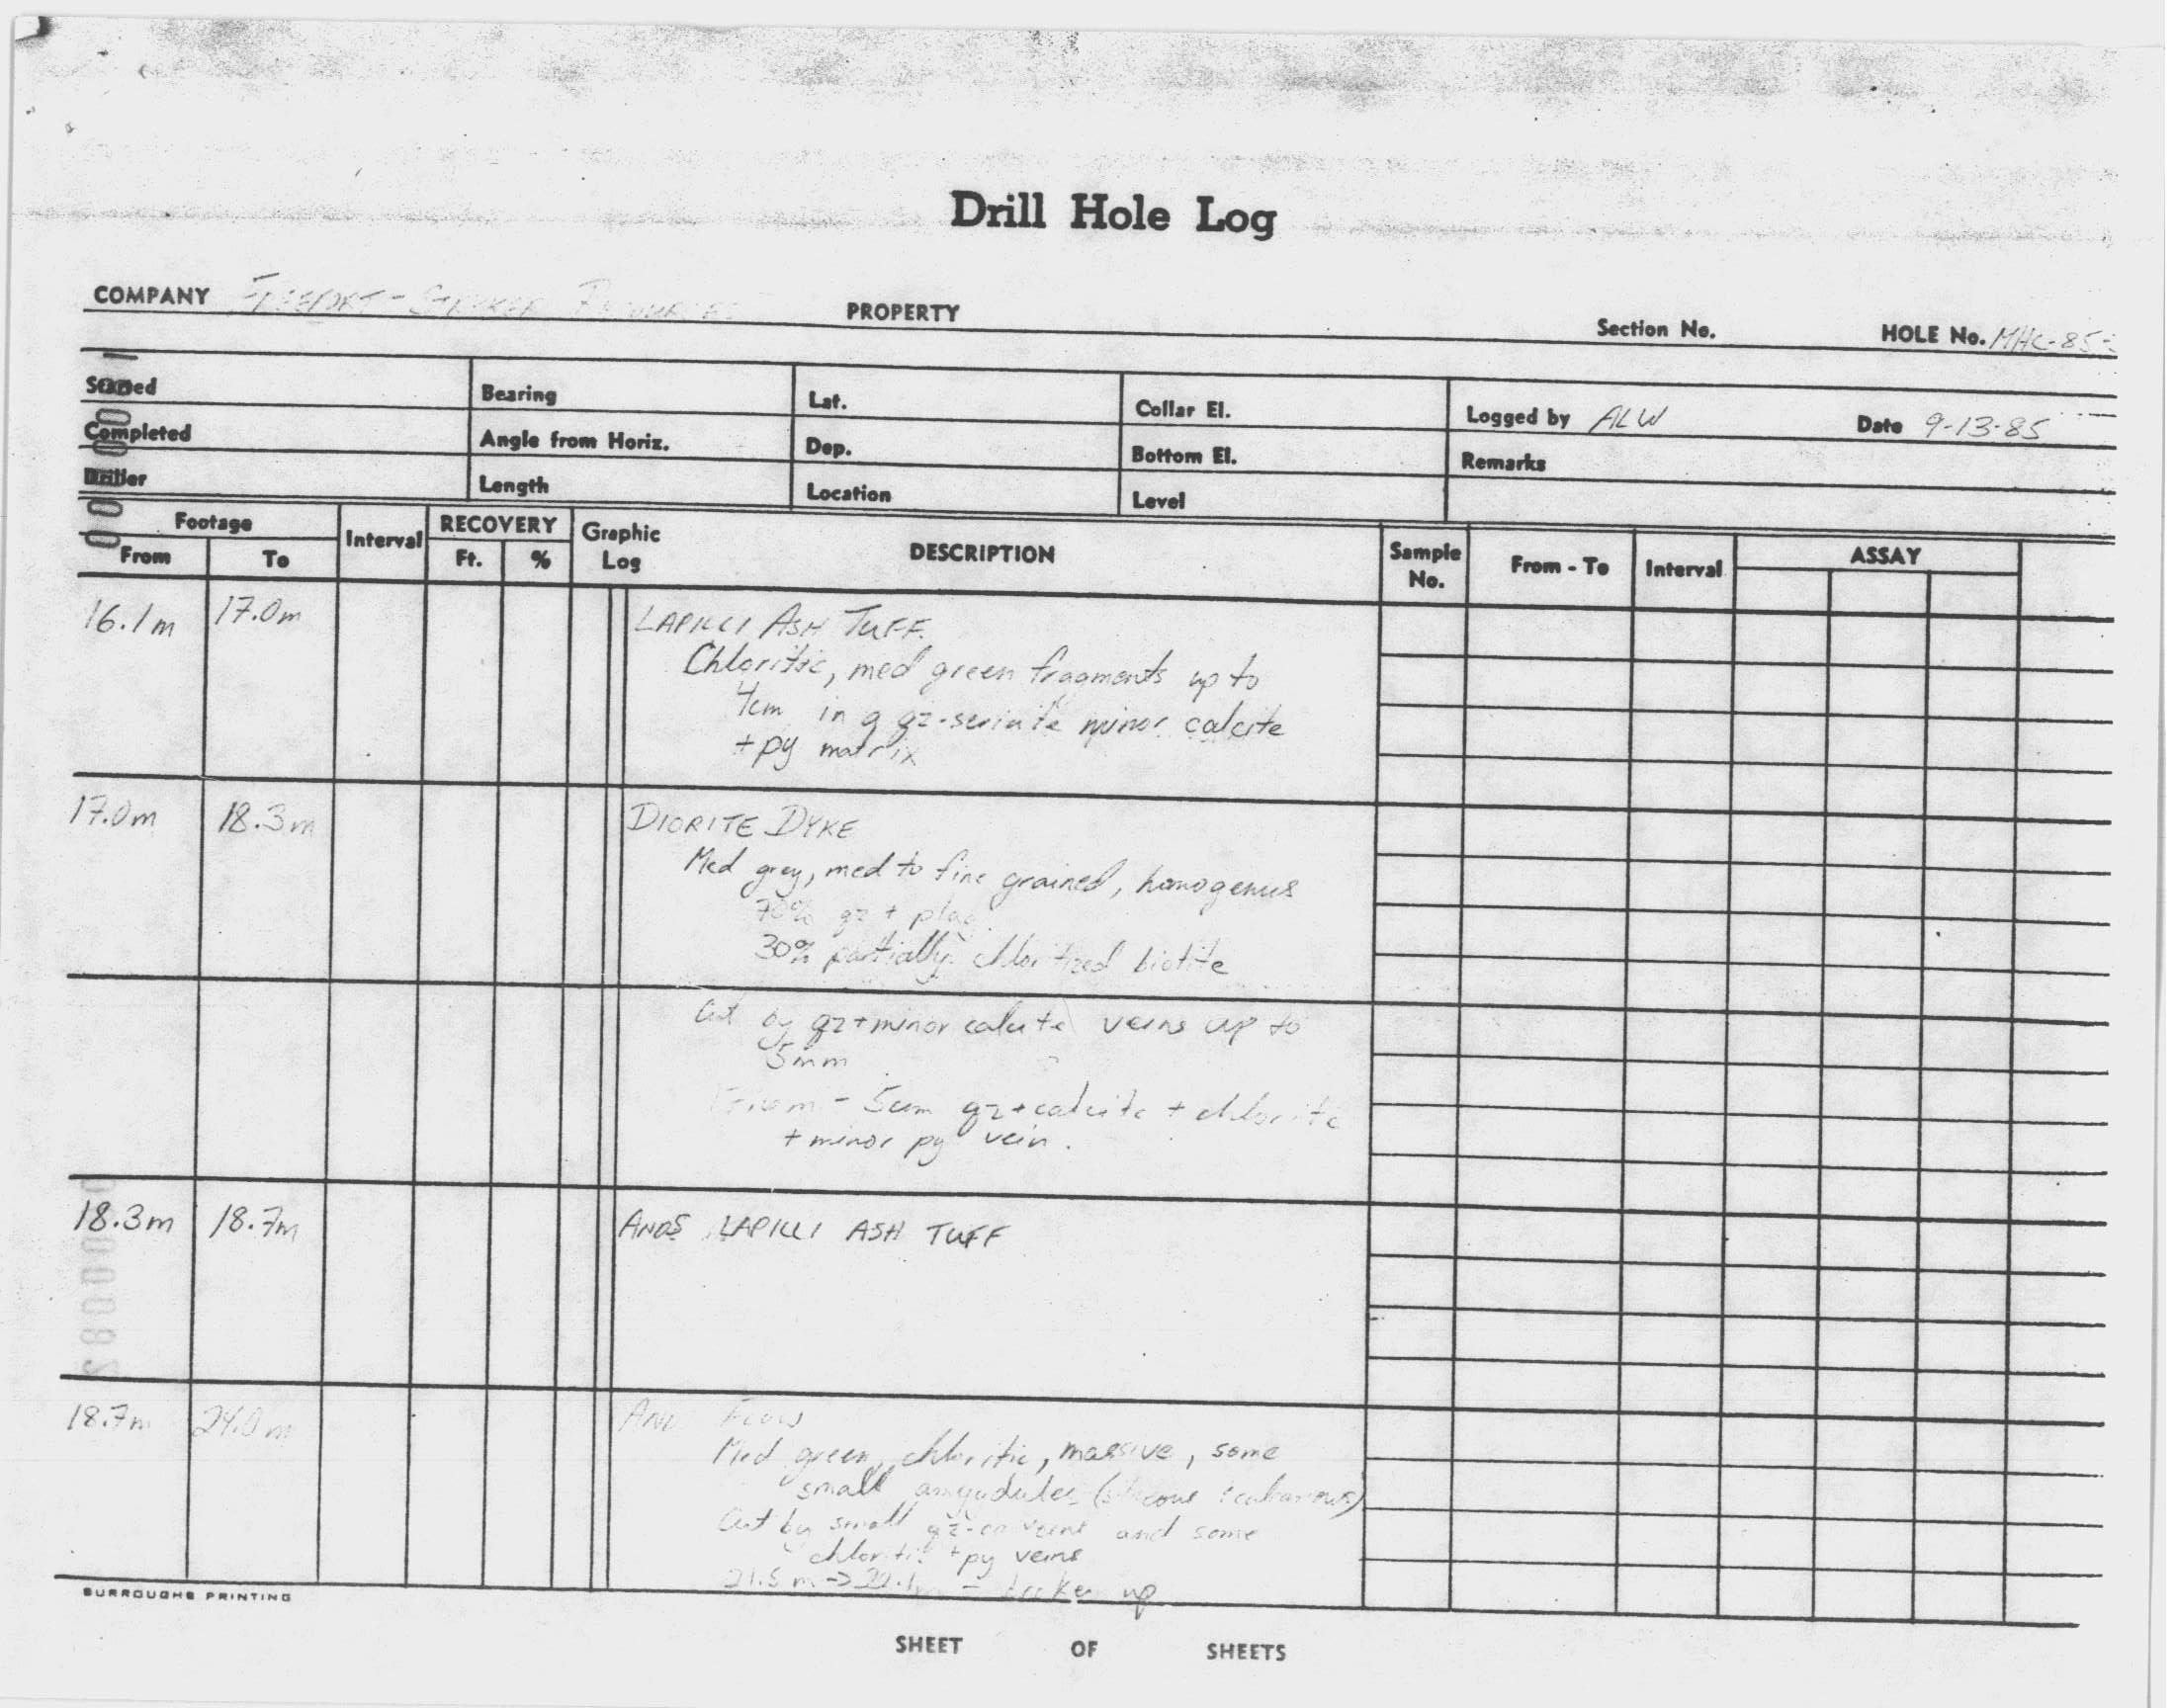 Drill Hole Log
COMPANY PROPERTY Section No. HOLE No. MHC-85-
Started Bearing Lat. Collar El. Logged by ALW Date 9-13-85
Completed Angle from Horiz. Dep. Bottom El. Remarks
Driller Length Location Level
Footage Interval RECOVERY Graphic Log DESCRIPTION Sample No. From - To Interval ASSAY
From To Ft. %
16.1m 17.0m LAPILLI ASH TUFF.
Chloritic, med green fragments up to
4cm in a qz-sericite minor calcite
+ py matrix
17.0m 18.3m DIORITE DYKE
Med grey, med to fine grained, homogenus
70% qz + plag
30% partially chloritized biotite
Cut by qz + minor calcite veins up to
5mm
- 5cm qz + calcite + chlorite
+ minor py vein.
18.3m 18.7m ANDS LAPILLI ASH TUFF
18.7m 24.0m AND FLOW
Med green, chloritic, massive, some
small amygdules
Cut by small veins and some
chloritic + py veins
21.5m -> - broken up
BURROUGHS PRINTING
SHEET OF SHEETS